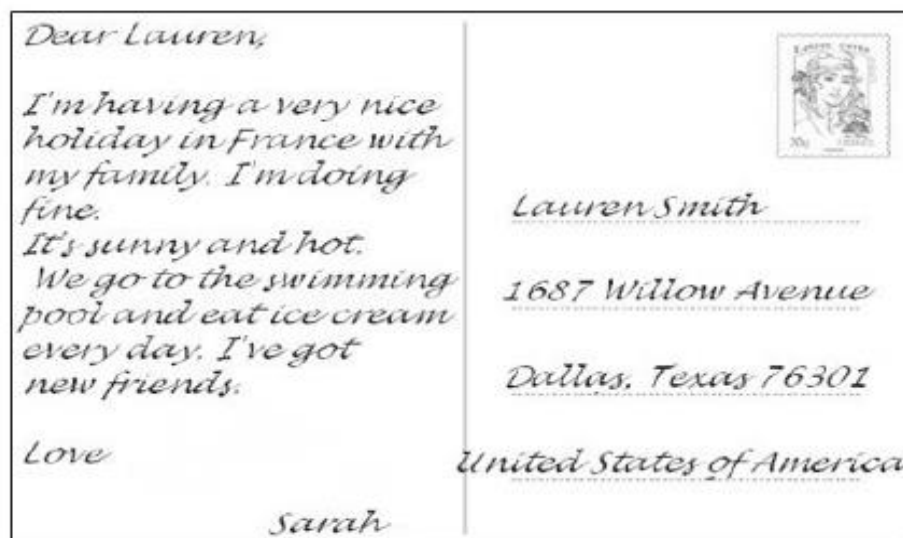 Dear Lauren,
I'm having a very nice
holiday in France with
my family. I'm doing
fine.
It's sunny and hot.
We go to the swimming
pool and eat ice cream
every day. I've got
new friends.
Love
Sarah
Lauren Smith
1687 Willow Avenue
Dallas, Texas 76301
United States of America